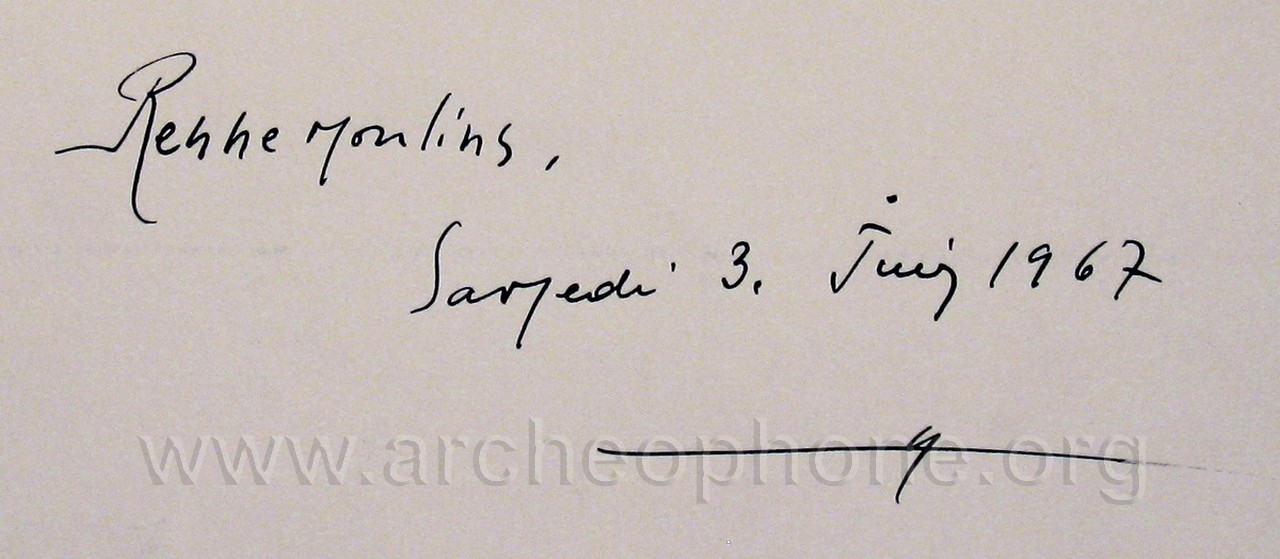 Rennemoulins,
Samedi 3. Juin 1967
www.archeophone.org